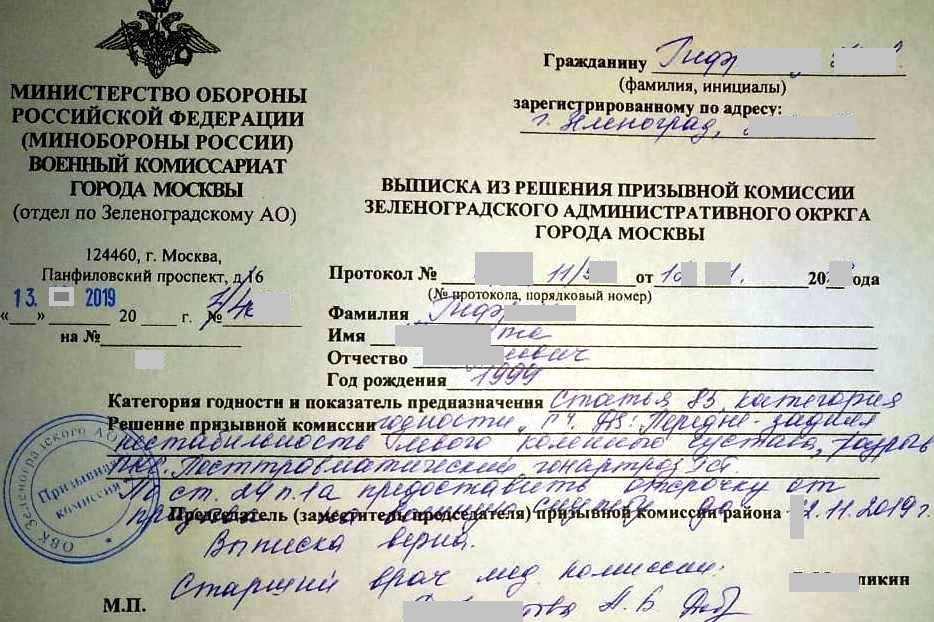 МИНИСТЕРСТВО ОБОРОНЫ
РОССИЙСКОЙ ФЕДЕРАЦИИ
(МИНОБОРОНЫ РОССИИ)
ВОЕННЫЙ КОМИССАРИАТ
ГОРОДА МОСКВЫ
(отдел по Зеленоградскому АО)
124460, г. Москва,
Панфиловский проспект, д.16
13. 2019
«__» ______ 20 ___ г. №
на №
Гражданину
(фамилия, инициалы)
зарегистрированному по адресу:
г. Зеленоград,
ВЫПИСКА ИЗ РЕШЕНИЯ ПРИЗЫВНОЙ КОМИССИИ
ЗЕЛЕНОГРАДСКОГО АДМИНИСТРАТИВНОГО ОКРКГА
ГОРОДА МОСКВЫ
Протокол № 11/ от 20 ода
(№ протокола, порядковый номер)
Фамилия
Имя
Отчество
Год рождения 1999
Категория годности и показатель предназначения Статья 83, категория
Решение призывной комиссии годности "Г" ДЗ: Передне-задняя
нестабильность левого коленного сустава, разрыв
ПКС. Посттравматический гонартроз Iст.
По ст. 24 п.1а предоставить отсрочку от
призыва на военную службу до 12.11.2019 г.
Председатель (заместитель председателя) призывной комиссии района
Выписка верна.
Старший врач мед. комиссии.
ликин
М.П.
А. В.
ОВК Зеленоградского АО
Призывная
комиссия